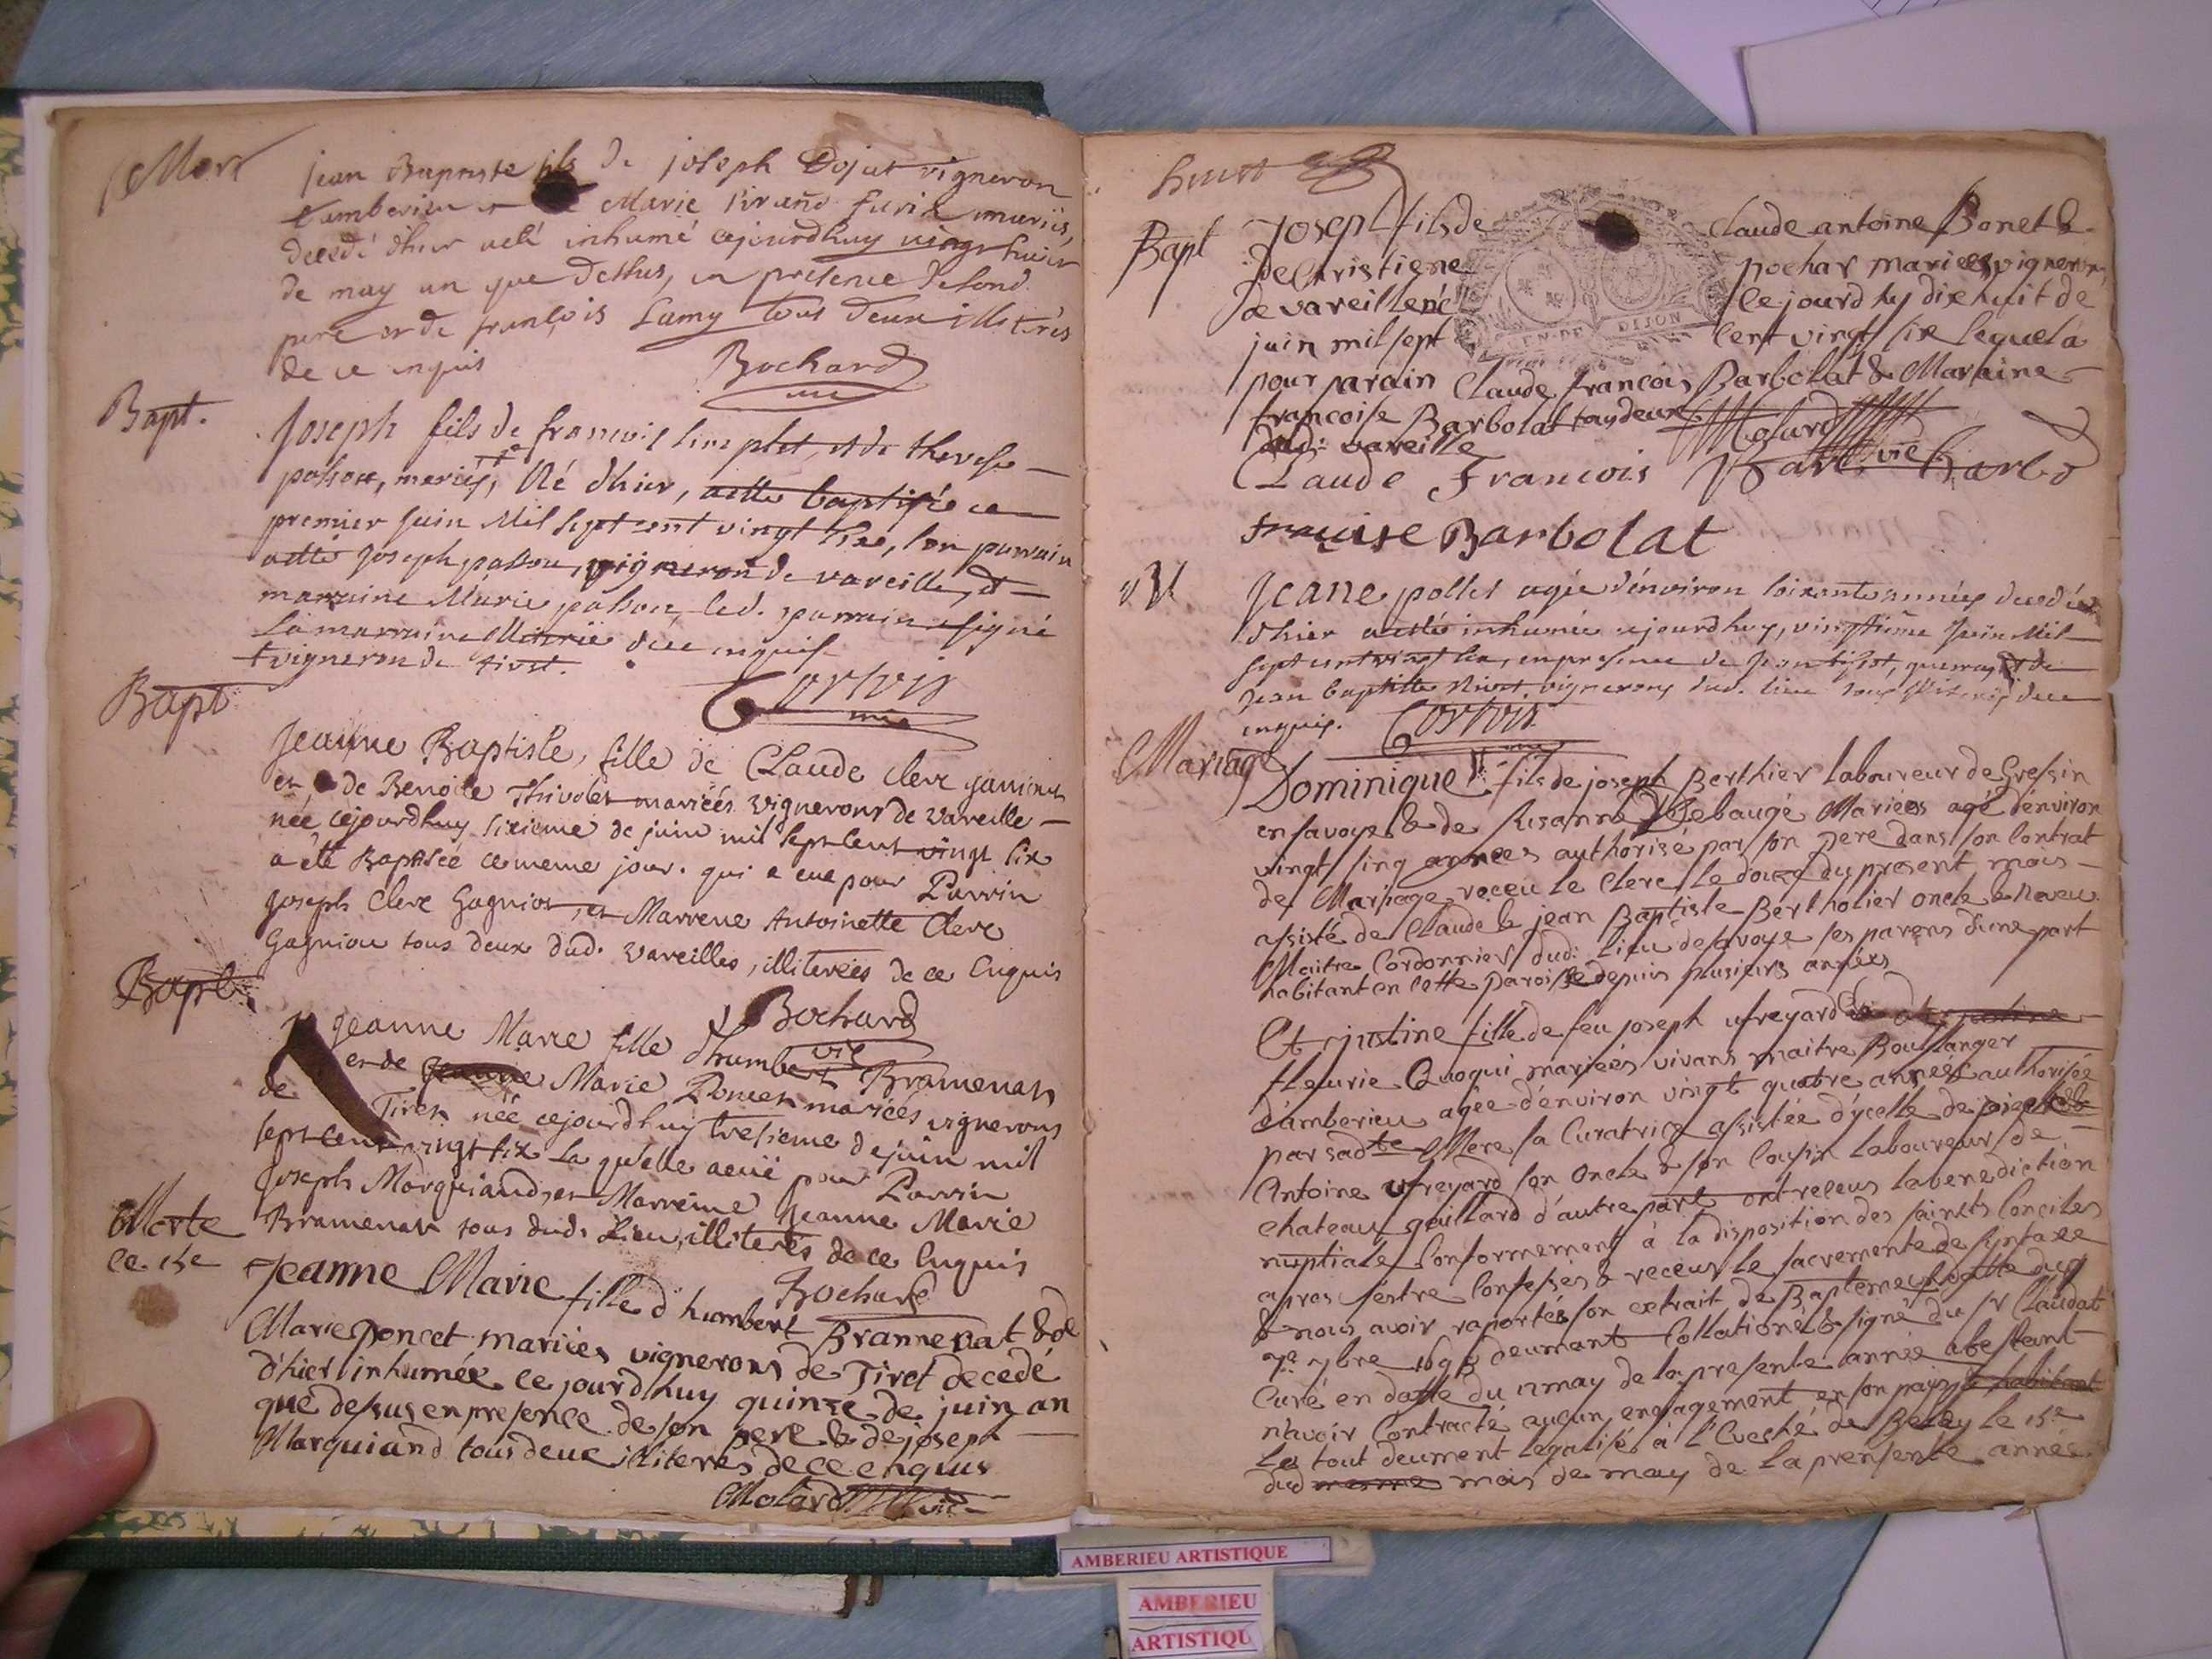 Mort
jean Baptiste fils de joseph Dojat vigneron
d'amberieu et Marie mariés,
decedé d'hier aeté inhumé cejourdhuy vingt huit
de may an que dessus, en presence de sond.
pere et de françois Lamy tous deux illiterés
de ce enquis
Bochard
vic
Bapt.
Joseph fils de francois limplet et de therese
passou, mariés, Né d'hier, aette baptisé ce
premier Juin Mil Sept cent vingt six, son parrain
aetté Joseph passou, vigneron de vareille, et
marraine Marie passou, led. parrain signé
La marraine de ce enquise
+ vigneron de tiret.
Corivis
vic
Bapt
Jeanne Baptiste, fille de Claude Clerc
et de Benoite Thivolet mariées vignerons de Vareille
née cejourdhuy sixieme de juin mil sept cent vingt six
a été Baptisée ce meme jour. qui a eue pour Parrin
joseph Clerc Gagniou, et Marrene Antoinette Clerc
Gagniou tous deux dud. Vareilles, illiterées de ce Enquis
Bochard
vic
Bapt.
Jeanne Marie fille d'humbert Bramenat
et de Jeanne Marie Poncet mariées vignerons
de Tiret née cejourdhuy tresieme de juin mil
sept cent vingt six La quelle aeüe pour Parrin
Joseph Marquiand, et Marreine Jeanne Marie
Bramenat tous dud. Lieu, illiterés de ce Enquis
Bochard
Morte
ce 15e
Jeanne Marie fille d'humbert Brannenat & de
Marie poncet mariées vignerons de Tiret decedé
d'hier inhumée ce jourd'huy quinze de juin an
que dessus en presence de son pere & de joseph
Marquiand tous deux illiteres de ce enquis
Molard vic
huit
Bapt
Joseph fils de Claude antoine Bonet &
de Christiene pochat mariees vignerons
de vareille né ce jourd'huy dix huit de
juin mil sept cent vingt six lequel a
pour parain Claude francois Barbolat & Maraine
francoise Barbolat tous deux
dud: vareille
Molard
vic
GEN DE DIJON
Claude Francois Barbo
francoise Barbolat
M
Jeane pollet agée d'environ soixante années decedée
d'hier aetté inhumée cejourdhuy, vingtième Juin Mil
Sept cent vingt six, en presence de Jean et de
Jean baptiste vignerons dud. lieu tous illiterés de ce
enquis.
Corivis
vic
Mariage
Dominique fils de joseph Berthier laboureur de Gressin
en savoye & de Susanne Debaugé Mariées agé d'environ
vingt sinq années authorisé par son pere dans son Contrat
de Mariage receu le Clerc le douze du present mois
assisté de Claude & jean Baptiste Bertholier oncle & neveu
Maitre Cordonnier dud: lieu de savoye ses parens d'une part
habitant en cette paroisse depuis plusieurs années
Et justine fille de feu joseph ufreyard
fleurie Quoqui mariées vivans maitre Boullanger
d'amberieu agée d'environ vingt quatre années authorisée
par sadte Mere sa Curatrice assistée d'ycelle de joseph &
Antoine ufreyard son oncle & son Cousin laboureur de
chateau gaillard d'autre part ont receus la benediction
nuptiale Conformement à la disposition des saincts Conciles
apres s'estre Confessés & receus le sacrement de sintaxe
& nous avoir raportés son extrait de Baptemes datte du
7e 7bre deumant Collationé & signé du sr Claudat
Curé en datte du 12 may de la presente année atestant
n'avoir Contracté aucun engagement en son pays
Le tout deument Legalisé à l'Eveché de Belley le 15e
dud mois de may de la prensente année
AMBERIEU ARTISTIQUE
AMBERIEU
ARTISTIQU